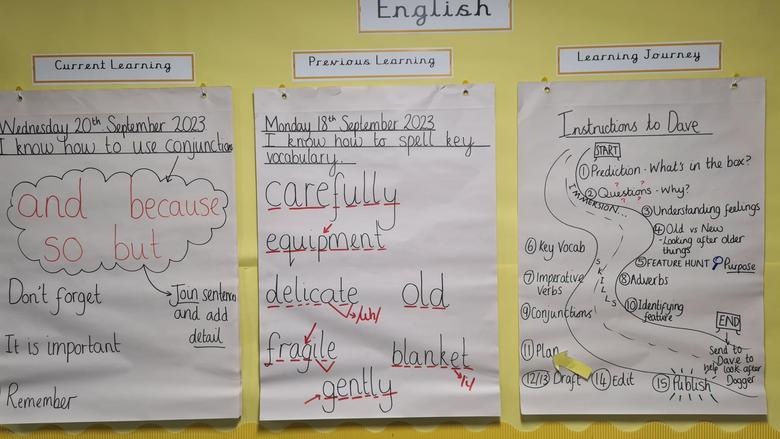 English
Current Learning
Wednesday 20th September 2023
I know how to use conjunctions
and because
so but
Join sentences
and add
detail
Don't forget
It is important
Remember
Previous Learning
Monday 18th September 2023
I know how to spell key
vocabulary.
carefully
equipment
delicate old
/uh/
fragile blanket
/i/
gently
Learning Journey
Instructions to Dave
START
① Prediction - What's in the box?
② Questions - Why?
? ? ? ?
IMMERSION...
③ Understanding feelings
④ Old vs New
- Looking after older
things
⑤ FEATURE HUNT Purpose
SKILLS
⑥ Key Vocab
⑦ Imperative
verbs
⑧ Adverbs
⑨ Conjunctions
⑩ Identifying
feature
⑪ Plan
12/13 Draft
⑭ Edit
⑮ Publish
END
Send to
Dave to
help look after
Dogger